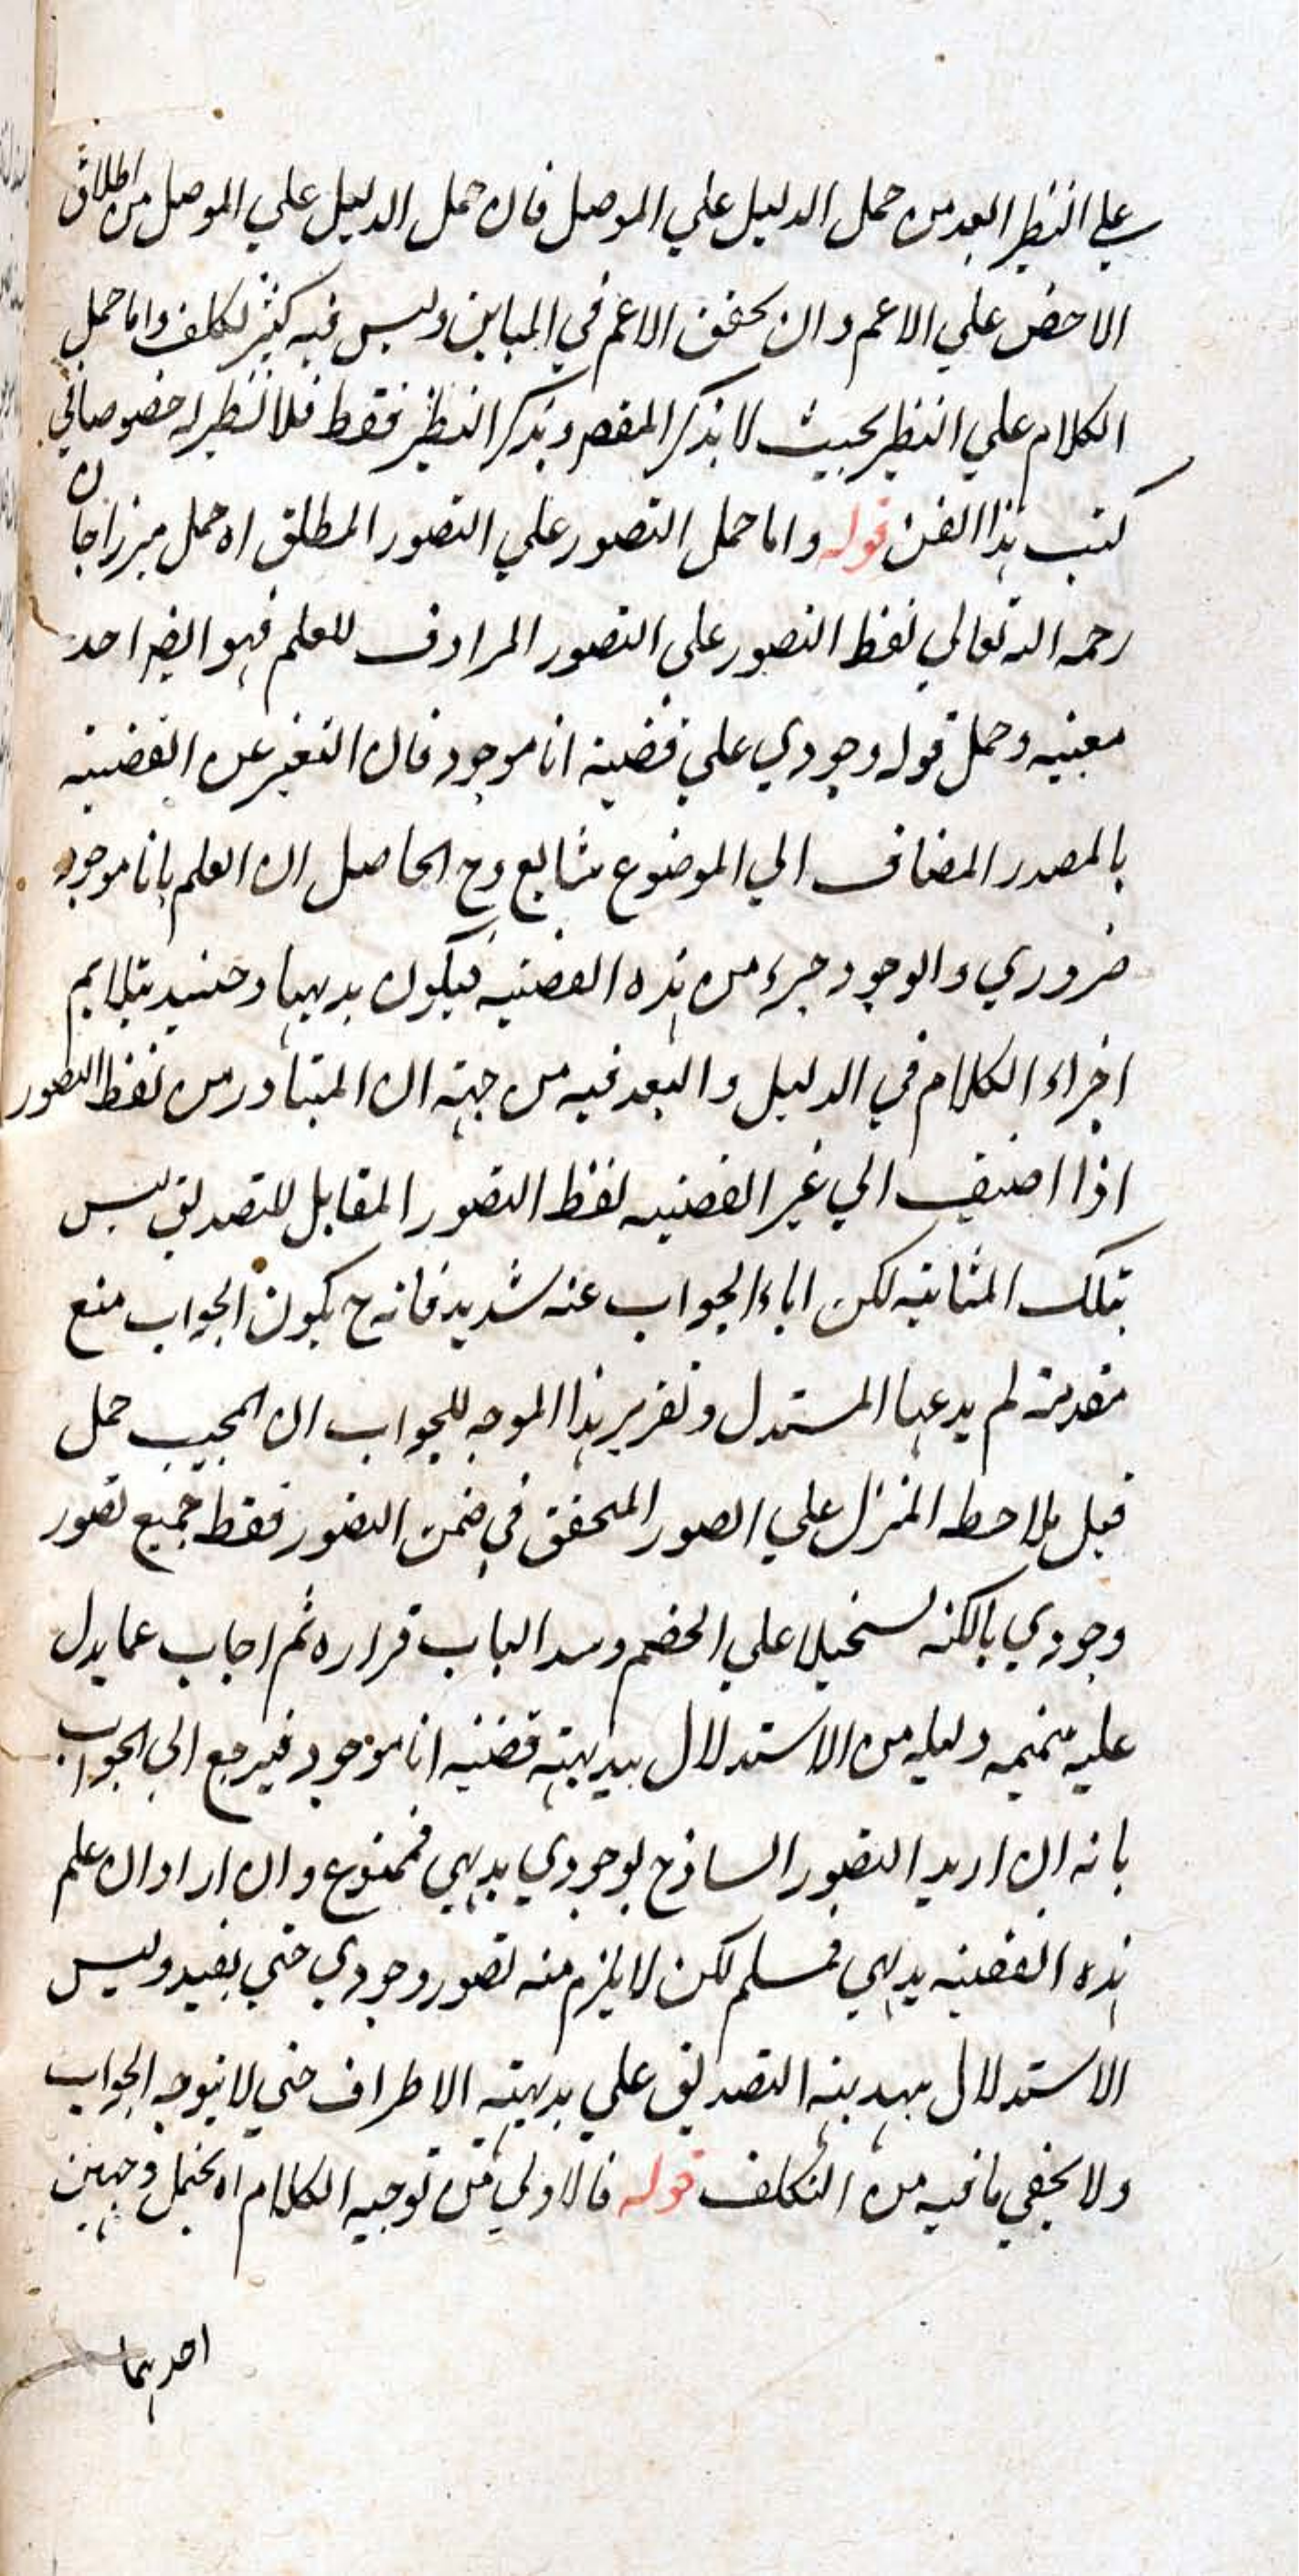 علي النظير ابعد من حمل الدليل علي الموصل فان حمل الدليل علي الموصل من اطلاق
الاخص علي الاعم وان تحقق الاعم في المباين وليس فيه كثير تكلف واما حمل
الكلام علي النظير بحيث لا يذكر المقصر ويذكر النظير فقط فلا نظير له خصوصا في
كتب هذا الفن قوله واما حمل التصور علي التصور المطلق اه حمل ميرزا جان
رحمه الله تعالي لفظ التصور علي التصور المرادف للعلم فهو ايضا احد
معنييه وحمل قوله وجودي علي قضية انا موجود فان التعبير عن القضية
بالمصدر المضاف الي الموضوع شايع وح الحاصل ان العلم بانا موجود
ضروري والوجود جزء من هذه القضية فيكون بديهيا وحينئذ يتلايم
اجزاء الكلام في الدليل والبعد فيه من جهة ان المتبادر من لفظ التصور
اذا اضيف الي غير القضية لفظ التصور المقابل للتصديق ليس
بتلك المثابة لكن اباء الجواب عنه شديد فانه ح يكون الجواب منع
مقدمة لم يدعها المستدل وتقرير هذا الموجه للجواب ان المجيب حمل
قبل ملاحظه المنزل علي الصور المتحقق في ضمن التصور فقط جميع تصور
وجودي بالكنه تسخيلا علي الخصم وسد الباب قراره ثم اجاب عما يدل
عليه متممه دليله من الاستدلال ببديهة قضية انا موجود فيرجع الي الجواب
بانه ان اريد التصور الساذج لوجودي بديهي فممنوع وان اراد ان علم
هذه القضية بديهي فمسلم لكن لا يلزم منه تصور وجودي حتي يفيد وليس
الاستدلال ببديهة التصديق علي بديهة الاطراف حتي لا يتوجه الجواب
ولا يخفي ما فيه من التكلف قوله فالاولي في توجيه الكلام اه يحتمل وجهين
احدهما